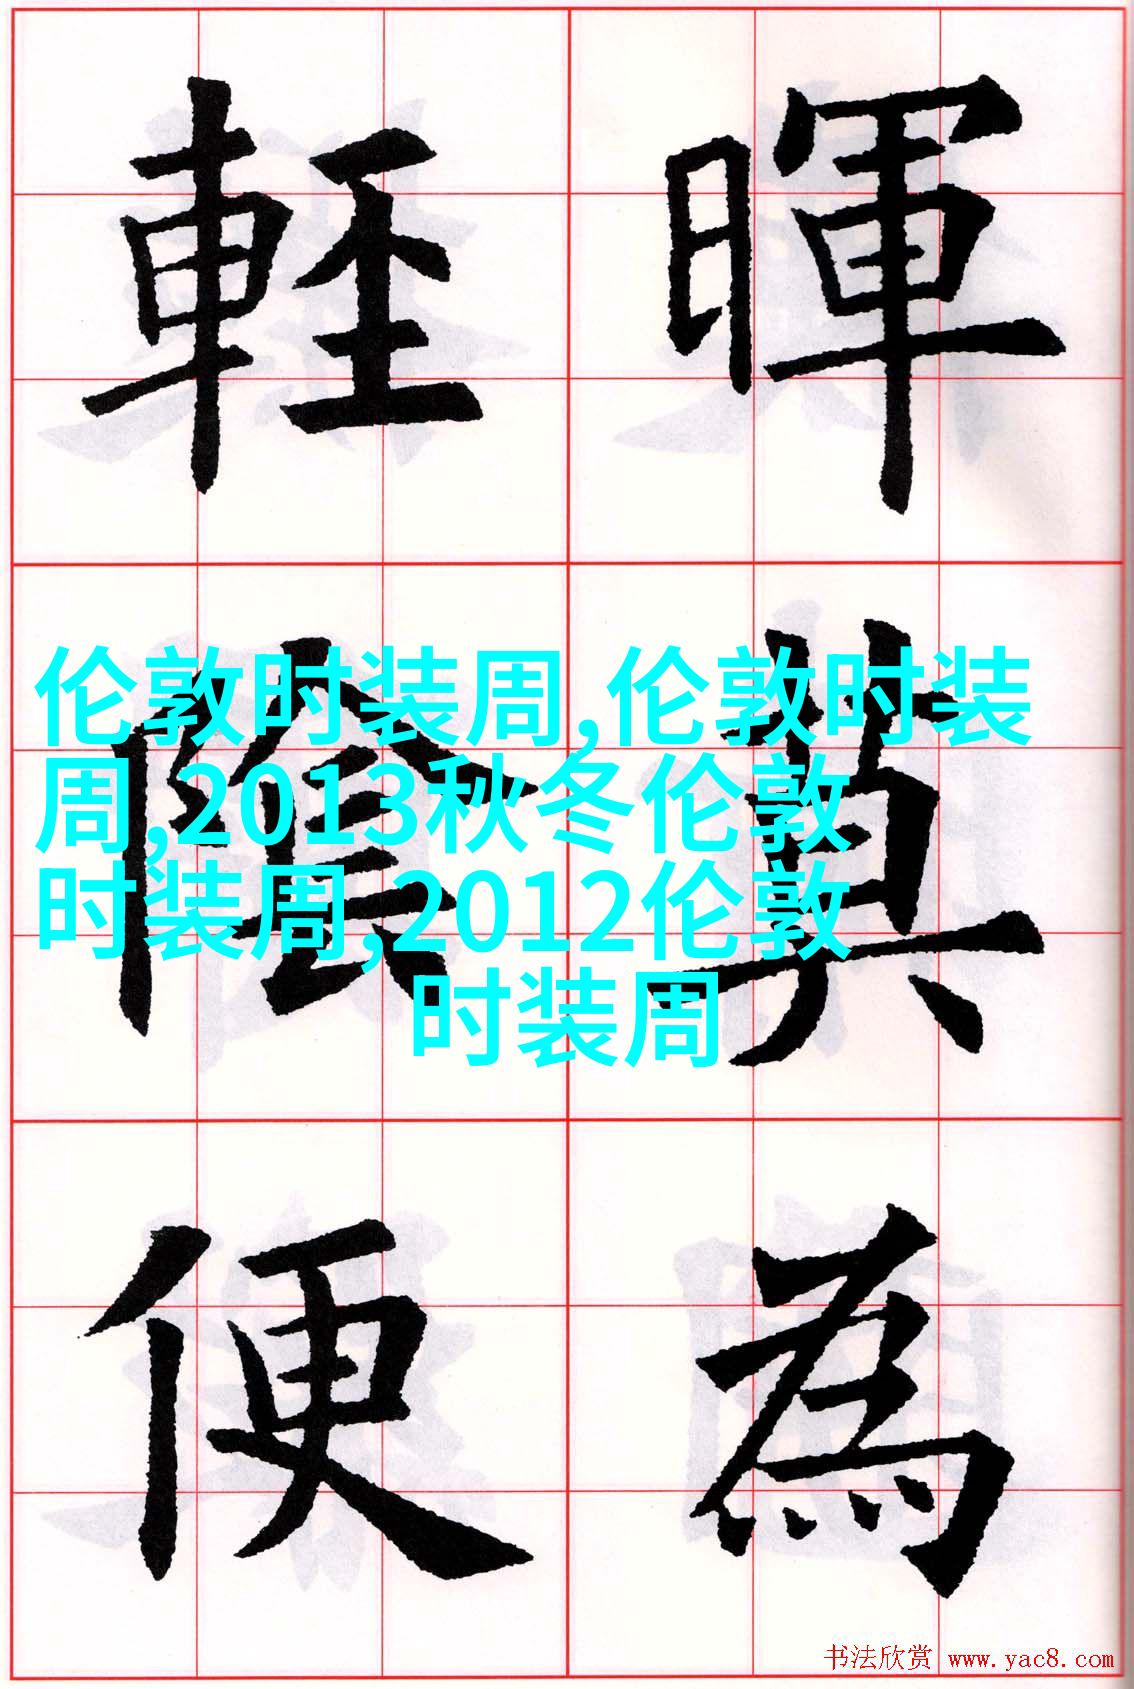 暉莫為
輕陰便
伦敦时装周,伦敦时装
周,2013秋冬伦敦
时装周,2012伦敦
时装周
书法欣赏 www.yac8.com